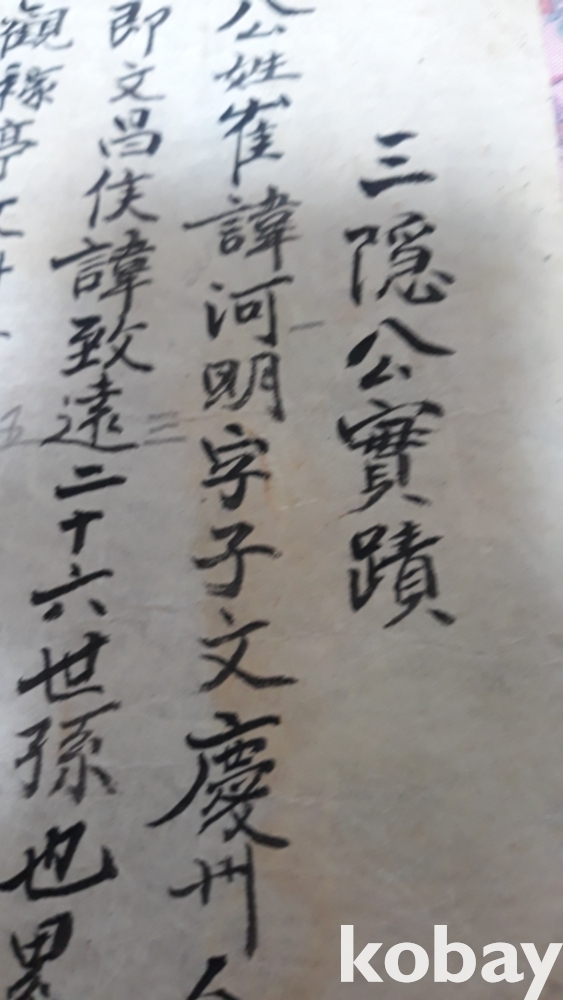 三隐公實蹟
公姓崔諱河明字子文慶州人
即文昌侯諱致遠二十六世孫也累
觀稼亭
三
五
kobay